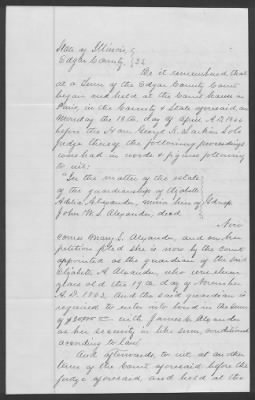 State of Illinois }
Edgar County } SS
Be it remembered that
at a Term of the Edgar County Court
begun and held at the Court House in
Paris, in the County & State aforesaid, on
Monday the 18th day of April A.D.
before the Hon George K. Larkin Sole
Judge thereof the following proceedings
was had in words & figures following
to wit:
"In the matter of the estate
of the guardianship of
Alexander, minor heir of
John W. S. Alexander, decd
Now
comes Mary L. Alexander, and on her
petition filed she is now by the Court
appointed as the guardian of the said
Elizabeth A. Alexander, who was
years old the 19th day of November
A.D. 1863, And the said guardian is
required to enter into bond in the sum
of with James Alexander
as her security in like sum, conditioned
according to law
And afterwards to wit at an other
term of the Court aforesaid before the
Judge aforesaid and held at the